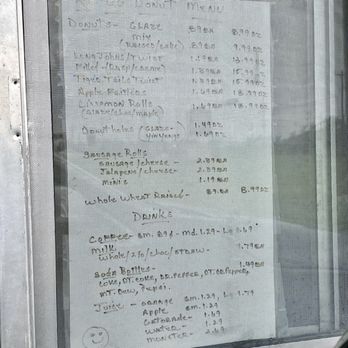 Donut Menu
Donuts - Glaze .89EA 8.99DZ
Mix
(Raised/cake) .89EA 9.99DZ
Long Johns/Twist 1.59EA 13.99DZ
Filled - 1.89EA 15.99DZ
Tiger Tails Twist
Apple Fritters 18.99DZ
Cinnamon Rolls 1.69EA 18.99DZ
(Glaze/choc/maple)
Donut holes (Glaze- 1.49DZ
1.69DZ
Sausage Rolls
Sausage/cheese - 2.89EA
Jalapeno/cheese - 2.89EA
Minis 1.19EA
Whole Wheat Raised - .89EA 8.99DZ
Drinks
Coffee - sm. 89¢ - md. 1.29 - Lg 1.69
Milk
Whole/2%/Choc/Straw. - 1.79EA
Soda Bottles - 1.99EA
Coke, DT. Coke, DR. Pepper, DT. DR. Pepper,
MT. Dew, Pepsi.
Juice - Orange sm. 1.29, Lg 1.79
Apple sm. 1.29
Gatorade - 1.99
Water - 1.29
Monster - 2.69